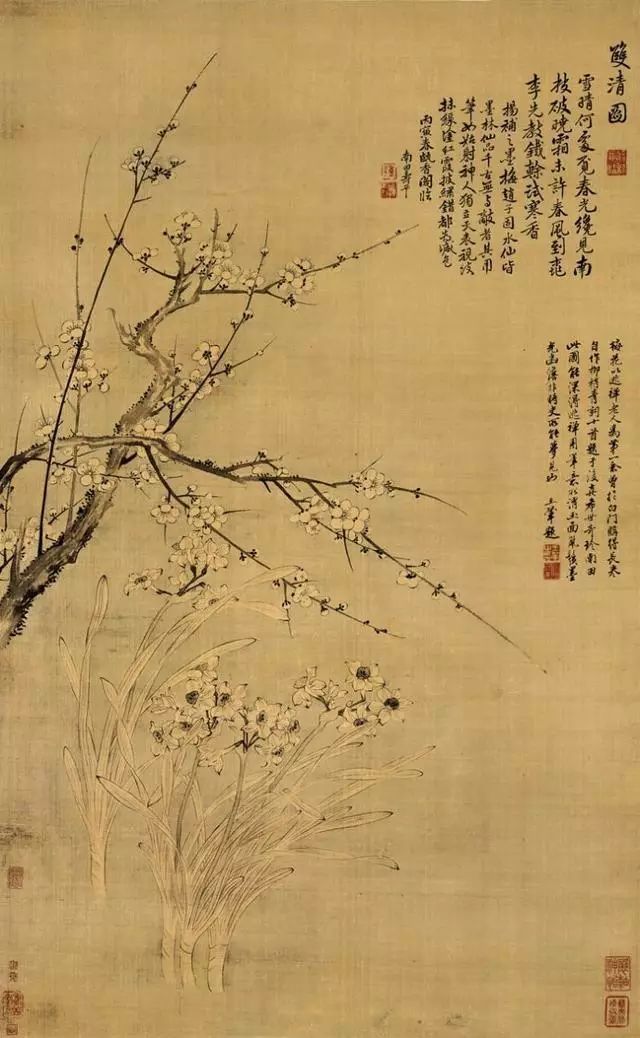 雙清圖
雪晴何處覓春光纔見南
枝破曉霜未許春風到桃
李先教鐵榦試寒香
楊補之墨梅趙子固水仙皆
墨林仙品千古無與敵者其用
筆如姑射神人獨立天表視彼
抹綠塗紅霞披縟錯都為減色
丙寅春甌香閣臨
南田壽平
梅花以逃禪老人為第一余曾於白門購得長卷
自作柳梢青詞十首題于後真希世奇珍南田
此圖能深得逃禪用筆意水僊
光幽澹非時史所能夢見也 王翬題